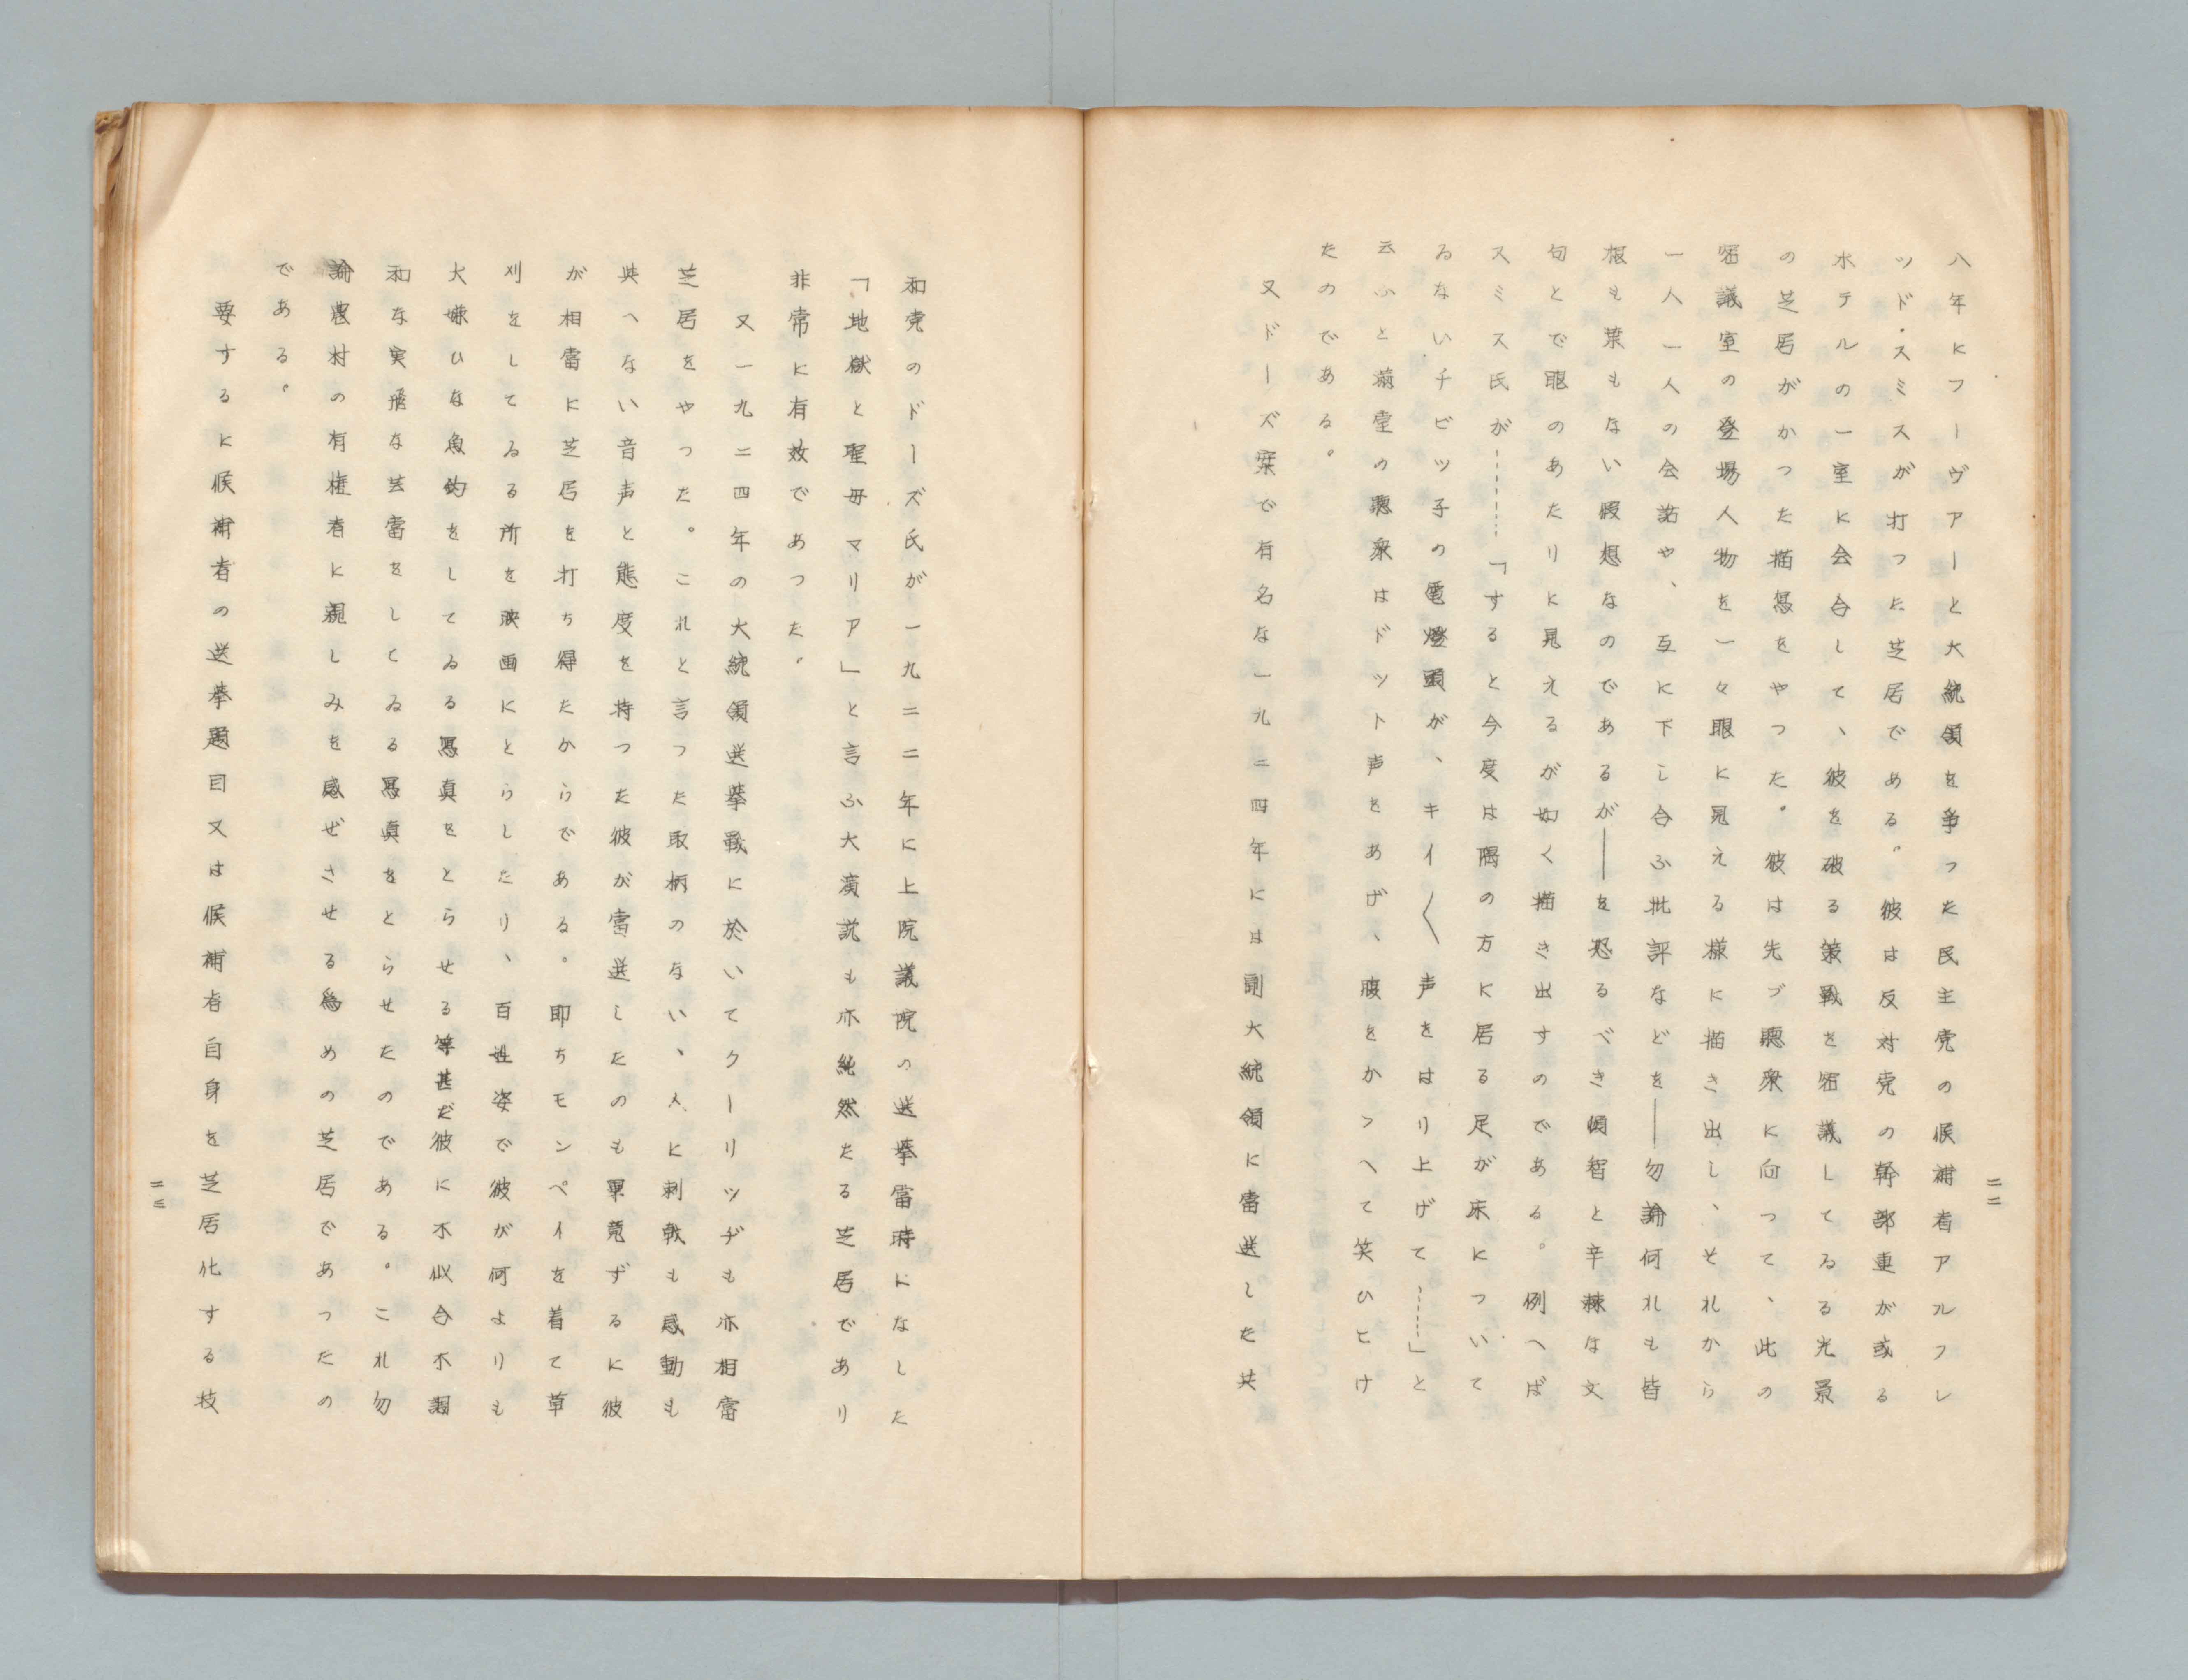 八年にフーヴアーと大統領を争つた民主党の候補者アルフレ
ツド・スミスが打つた芝居である。彼は反対党の幹部重が或る
水テルの一室に会合して、彼を破る策戦を宻議してゐる光景
の芝居がかつた描冩をやつた。彼は先づ聴衆に向つて、此の
宻議室の登場人物を一々眼に見える様に描き出し、それから
一人一人の会話や、互に下し合ふ批評などを――勿論何れも皆
根も葉もない假想なのであるが――を恐るべき傾智と辛辣な文
句とで眼のあたりに見えるが如く描き出すのである。例へば
スミス氏が………「すると今度は隅の方に居る足が床について
ゐないチビツ子の電燈頭が、キイ〱声をはり上げて……」と
云ふと満堂の聴衆はドツト声をあげ、腹をかゝへて笑ひこけ
たのである。
又ドーズ案で有名な一九二四年には副大統領に當選した共
二二
和党のドーズ氏が一九二二年に上院議院の選挙當時になした
「地獄と聖母マリア」と言ふ大演説も亦純然たる芝居であり
非常に有效であつた。
又一九二四年の大統領選挙戰に於いてクーリツヂも亦相當
芝居をやつた。これと言つた取柄のない、人に刺戟も感動も
與へない音声と態度を持つた彼が當選したのも畢竟ずるに彼
が相當に芝居を打ち得たからである。即ちモンペイを着て草
刈をしてゐる所を映画にとらしたり、百姓姿で彼が何よりも
大嫌ひな魚釣をしてゐる冩真をとらせる等甚だ彼に不似合不調
和な実際な芸當をしてゐる冩真をとらせたのである。これ勿
論農村の有権者に親しみを感ぜさせる爲めの芝居であつたの
である。
要するに候補者の選挙題目又は候補者自身を芝居化する技
二三